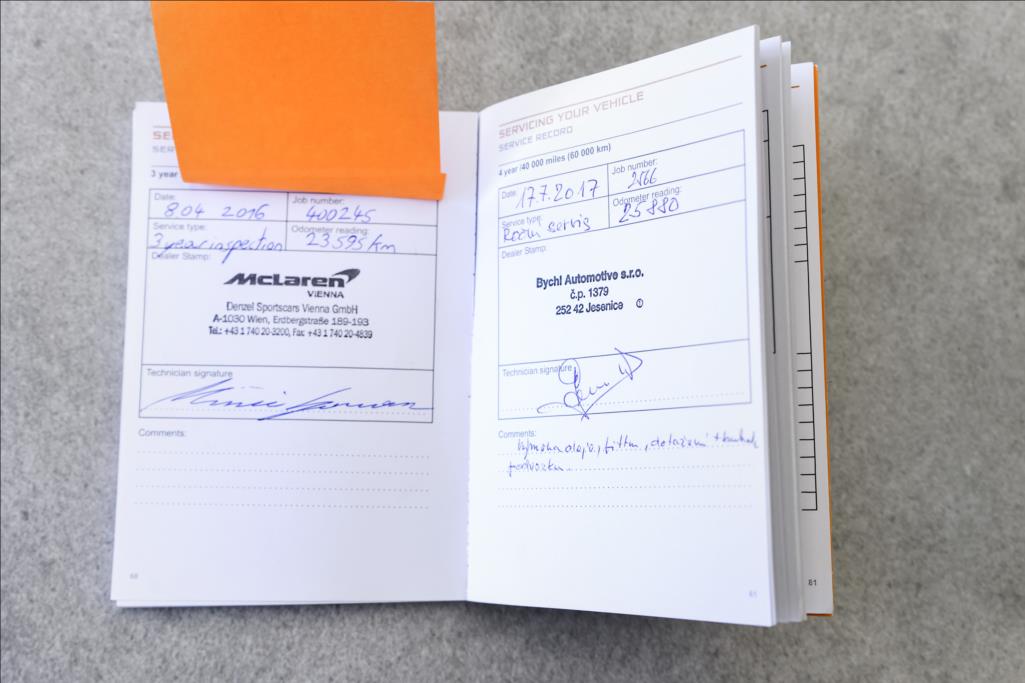 SE
SER
3 year
Date:
8.04 2016
Job number:
400245
Service type:
3 year inspection
Odometer reading:
23595 km
Dealer Stamp:
McLaren
VIENNA
Denzel Sportscars Vienna GmbH
A-1030 Wien, Erdbergstraße 189-193
Tel.: +43 1 740 20-3200, Fax: +43 1 740 20-4839
Technician signature
Comments:
60
SERVICING YOUR VEHICLE
SERVICE RECORD
4 year /40 000 miles (60 000 km)
Date:
17.7.2017
Job number:
2566
Service type:
servis
Odometer reading:
25880
Dealer Stamp:
Bychl Automotive s.r.o.
č.p. 1379
252 42 Jesenice
Technician signature
Comments:
filtru, dotažení
podvozku
61
61